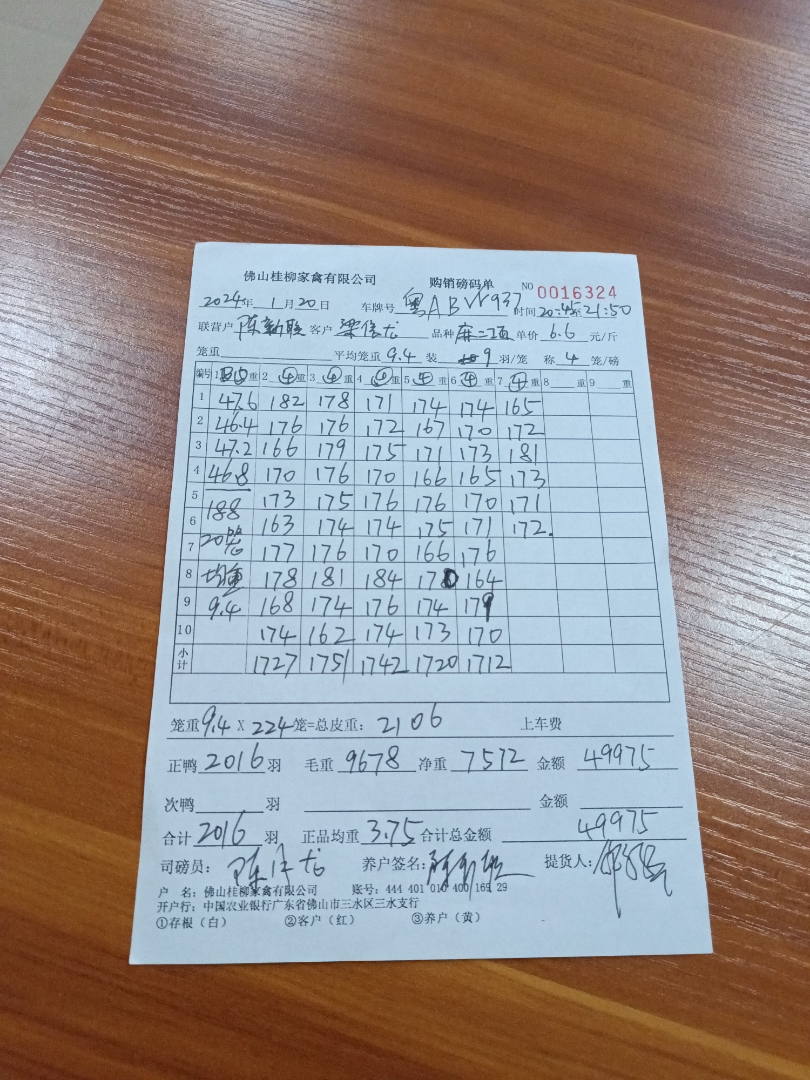 佛山桂柳家禽有限公司 购销磅码单 NO 0016324
2024年 1月20日 车牌号 粤ABW937 时间 20:45至21:50
联营户 陈新联 客户 梁信龙 品种 麻二项 单价 6.6 元/斤
笼重 平均笼重 9.4 装 9 羽/笼 称 4 笼/磅
编号 1 重 2 ④ 重 3 ④ 重 4 重 5 ④ 重 6 ④ 重 7 ④ 重 8 重 9 重
1 47.6 182 178 171 174 174 165
2 46.4 176 176 172 167 170 172
3 47.2 166 179 175 171 173 181
4 46.8 170 176 170 166 165 173
5 188 173 175 176 176 170 171
6 20笼 163 174 174 175 171 172.
7 均重 177 176 170 166 176
8 9.4 178 181 184 170 164
9 168 174 176 174 179
10 174 162 174 173 170
小计 1727 1751 1742 1720 1712
笼重 9.4 X 224 笼=总皮重: 2106 上车费
正鸭 2016 羽 毛重 9678 净重 7572 金额 49975
次鸭 羽 金额
合计 2016 羽 正品均重 3.75 合计总金额 49975
司磅员: 养户签名: 提货人:
户 名: 佛山桂柳家禽有限公司 账号: 444 401 010 400 169 29
开户行: 中国农业银行广东省佛山市三水区三水支行
①存根（白） ②客户（红） ③养户（黄）